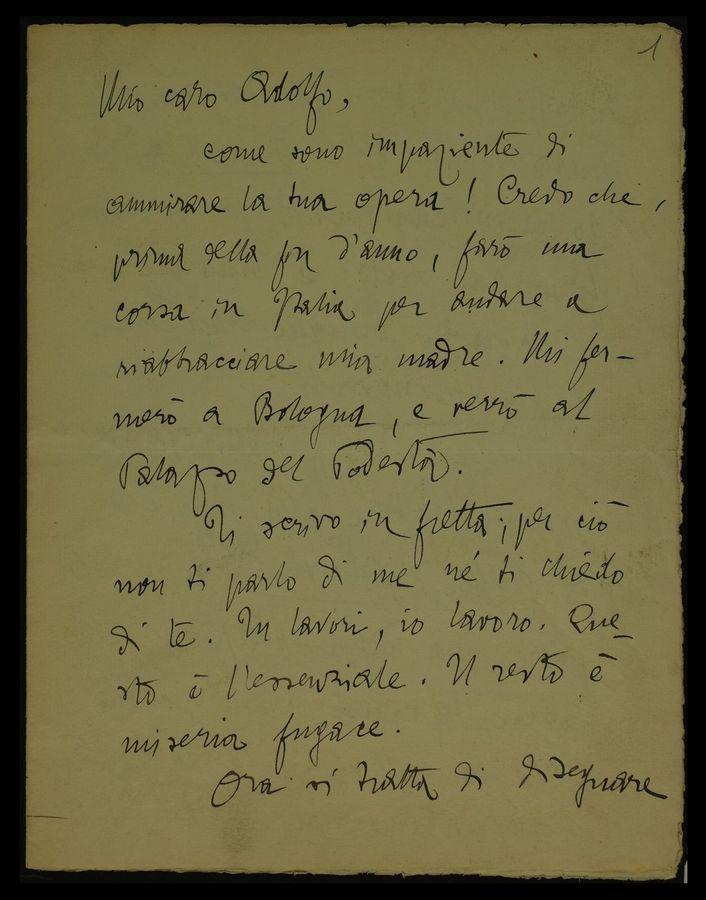 1
Mio caro Adolfo,
come sono impaziente di
ammirare la tua opera! Credo che,
prima della fin d'anno, farò una
corsa in Italia per andare a
riabbracciare mia madre. Mi fer-
merò a Bologna, e verrò al
Palazzo del Podestà.
Ti scrivo in fretta; per ciò
non ti parlo di me né ti chiedo
di te. Tu lavori, io lavoro. Que-
sto è l'essenziale. Il resto è
miseria fugace.
Ora si tratta di disegnare